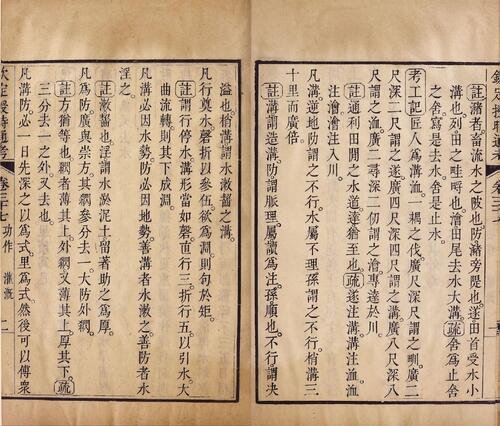 註瀦者畜流水之陂也防瀦旁隄也遂田首受水小
溝也列田之畦㽟也澮田尾去水大溝疏舍爲止舍
之舍寫是去水舍是止水
考工記匠人爲溝洫一耦之伐廣尺深尺謂之甽廣二
尺深二尺謂之遂廣四尺深四尺謂之溝廣八尺深八
尺謂之洫廣二尋深二仞謂之澮專達於川
註通利田間之水道達猶至也疏遂注溝溝注洫洫
注澮澮注入川
凡溝逆地防謂之不行水屬不理孫謂之不行梢溝三
十里而廣倍
註溝謂造溝防謂脈理屬讀爲注孫順也不行謂決
溢也梢溝謂水漱齧之溝
凡行奠水磬折以參伍欲爲淵則句於矩
註謂行停水溝形當如磬直行三折行五以引水大
曲流轉則其下成淵
凡溝必因水勢防必因地勢善溝者水漱之善防者水
淫之
註漱齧也淫謂水淤泥土留著助之爲厚
凡爲防廣與崇方其閷參分去一大防外閷
註方猶等也閷者薄其上外閷又薄其上厚其下疏
三分去一之外又去也
凡溝防必一日先深之以爲式里爲式然後可以傅衆
欽定授時通考 卷三十七 功作 灌漑 二